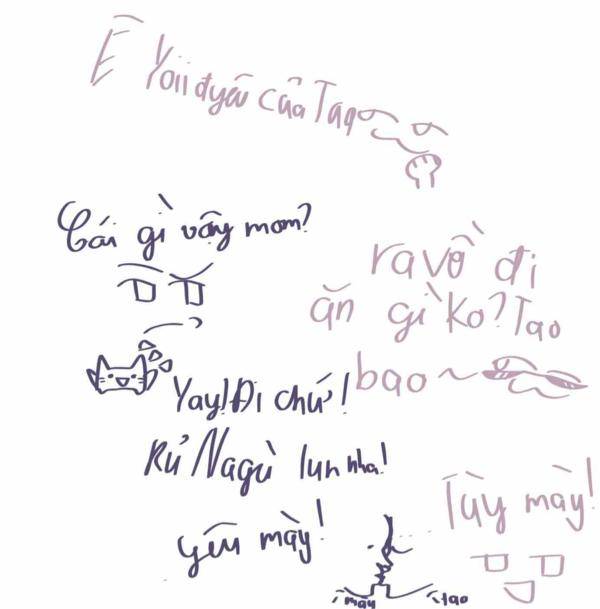 Ê Yoii đyêu của Tao
Cái gì vậy mom?
ra về đi
ăn gì ko? Tao
bao ~
Yay! Đi chứ!
Rủ Nagù lun nha!
Tùy mày!
yêu mày!
mày tao